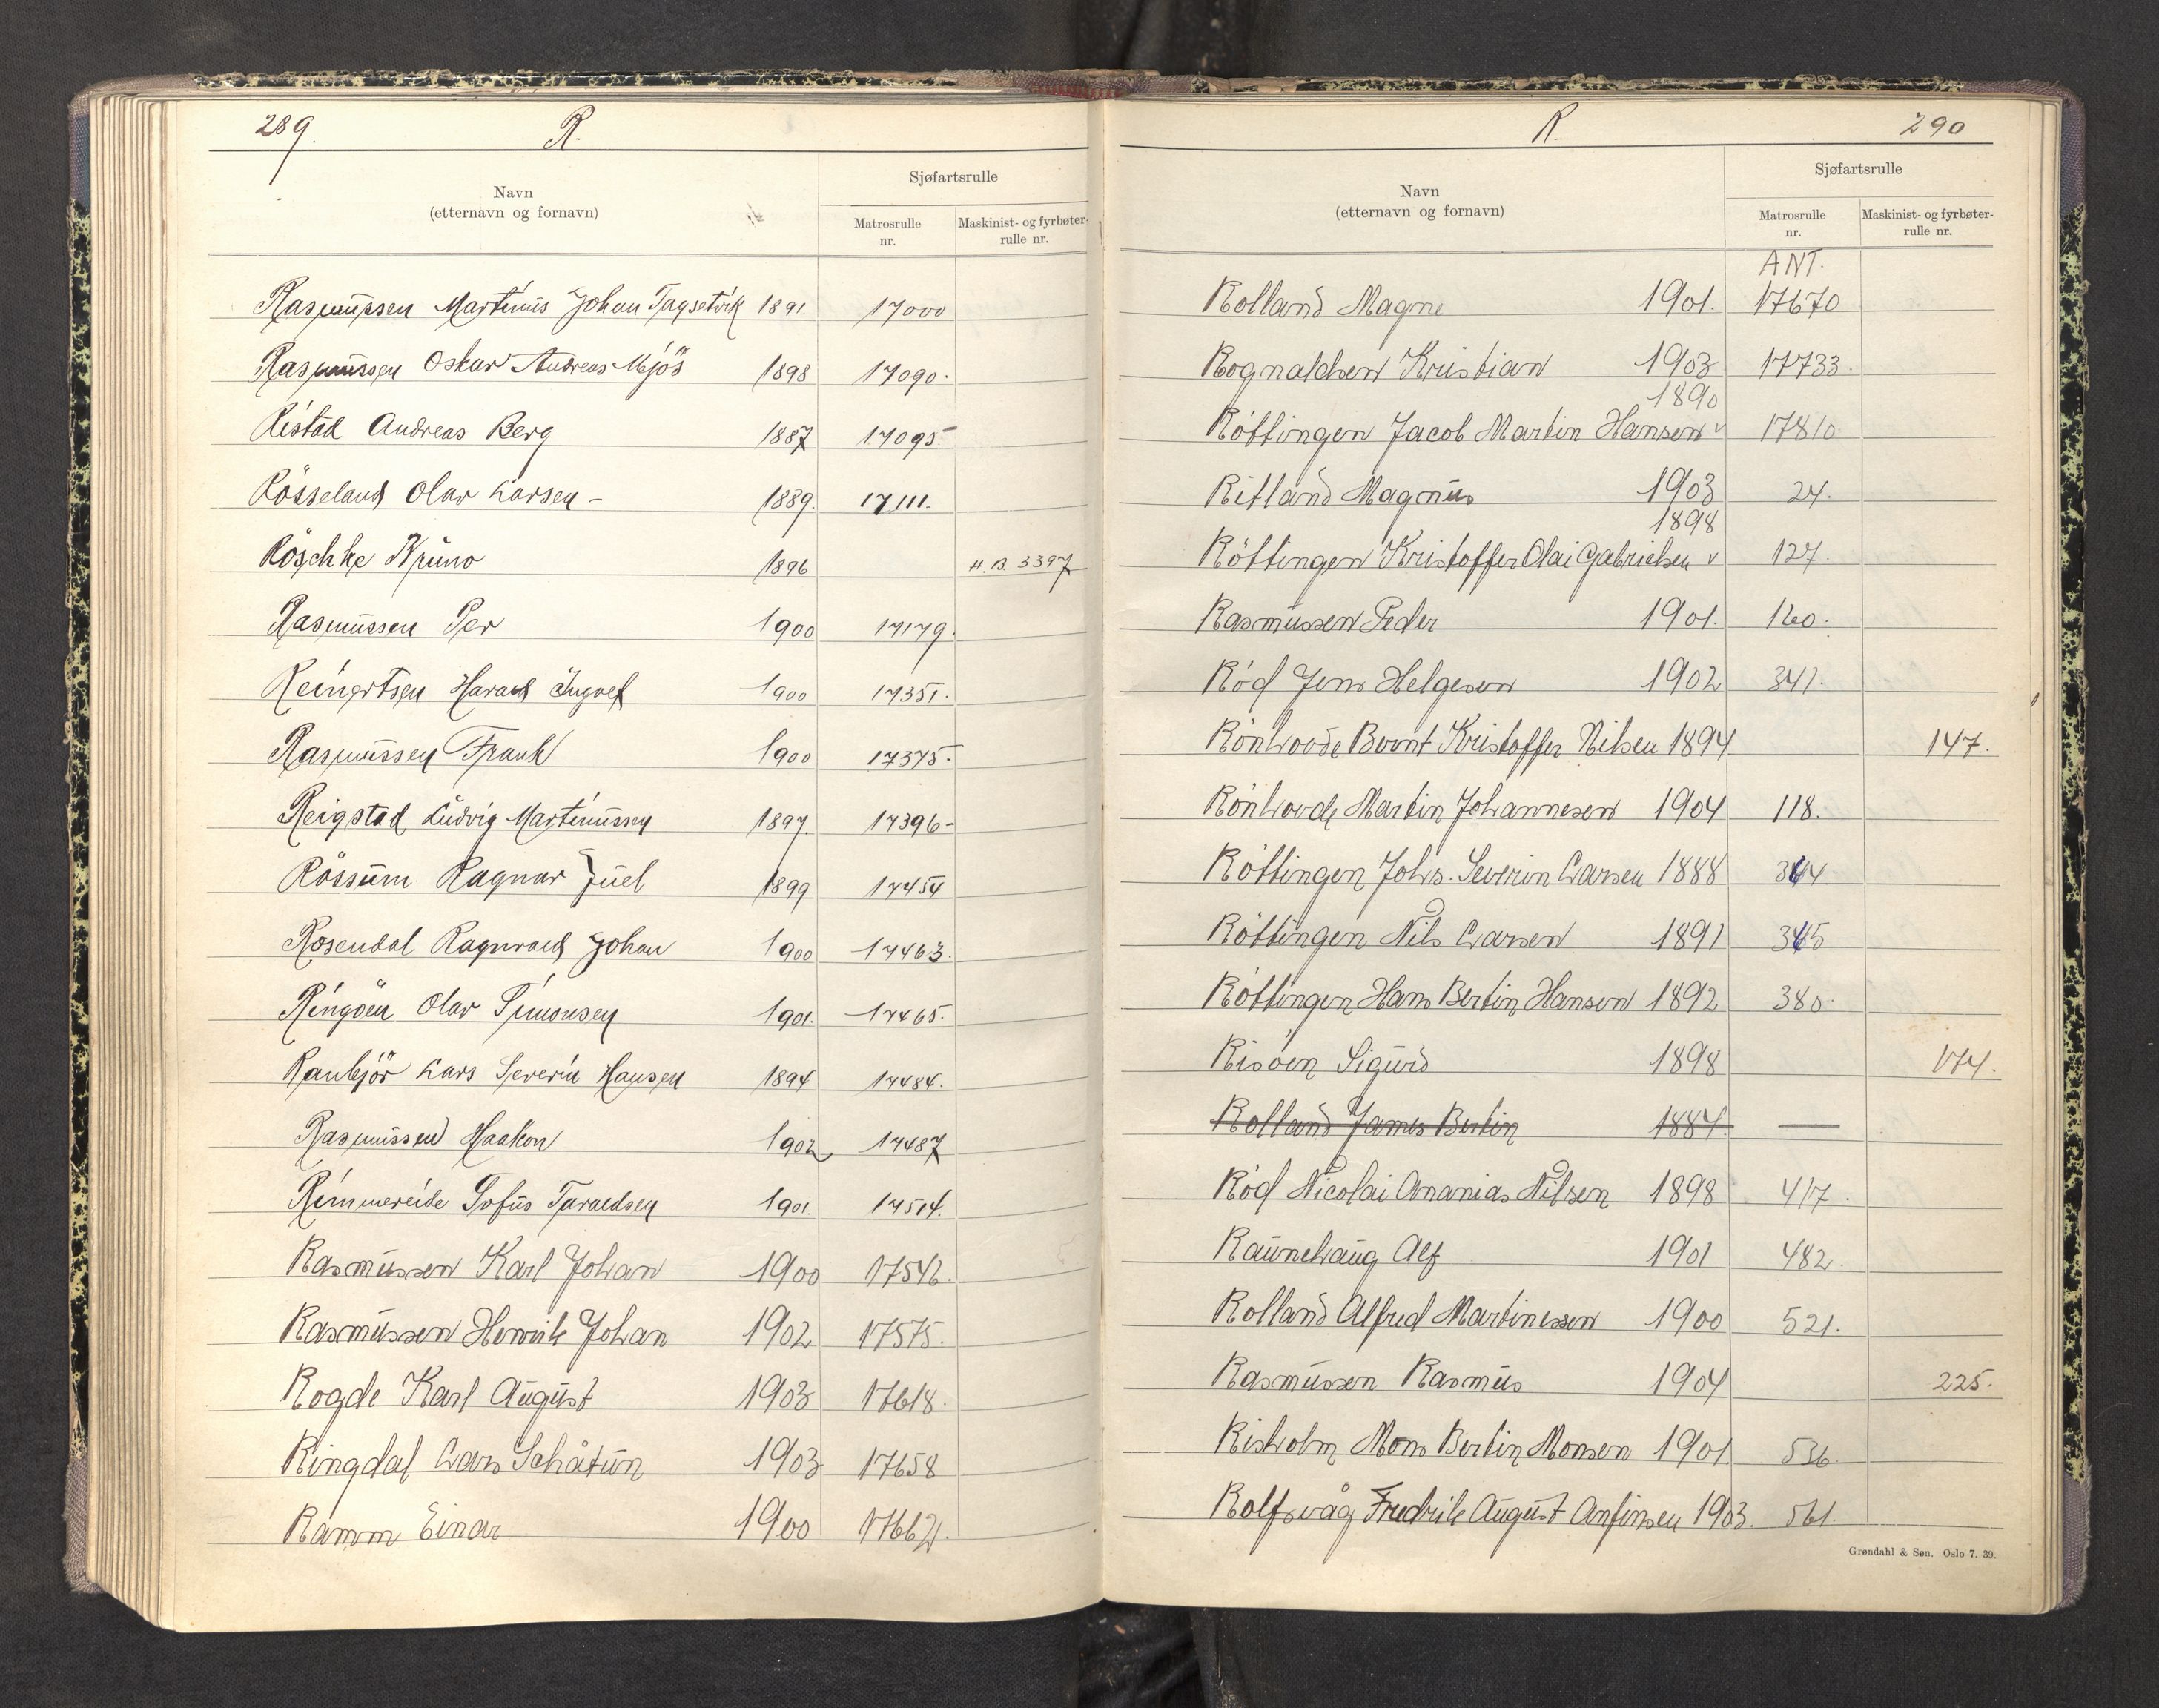 289.
R.
Navn
(etternavn og fornavn)
Sjøfartsrulle
Matrosrulle
nr.
Maskinist- og fyrbøter-
rulle nr.
Rasmussen Martinus Johan 1891. 17000
Rasmussen Oskar Andreas Mjös 1898 17090.
Ristad Andreas Berg 1887 17095
Rösseland Olav Larsen - 1889. 17111.
Röschke Bruno 1896 H.B. 3397
Rasmussen Per 1900 17179.
Reinertsen Harald Ingolf 1900 17351.
Rasmussen Frank 1900 17375.
Reigstad Ludvig Martinussen 1897. 17396-
Rössum Ragnar Juel 1899 17454
Rosendal Ragnvald Johan 1900 17463.
Ringöen Olav Simonsen 1901. 17465.
Ranbjör Lars Severin Hansen 1894 17484.
Rasmussen Haakon 1902 17487
Rimmereide Sofus Taraldsen 1901. 17514.
Rasmussen Karl Johan 1900 17546.
Rasmussen Henrik Johan 1902 17575.
Rogde Karl August 1903 17618.
Ringdal Lars Schåtun 1903 17658
Ramm Einar 1900
R.
290
Navn
(etternavn og fornavn)
Sjøfartsrulle
Matrosrulle
nr.
Maskinist- og fyrbøter-
rulle nr.
ANT.
Rolland Magne 1901. 17670
Rognaldsen Kristian 1903 17733.
1890
Röttingen Jacob Martin Hansen v 17810
Ritland Magnus 1903 24.
1898
Röttingen Kristoffer Olai Gabrielsen v 127.
Rasmussen Peder 1901. 160.
Röd Jens Helgesen 1902 341.
Rönhovde Bernt Kristoffer Nilsen 1894 147.
Rönhovde Martin Johannesen 1904 118.
Röttingen Johs. Severin Larsen 1888
Röttingen Nils Larsen 1891
Röttingen Hans Bertin Hansen 1892 380.
Risöen Sigurd 1898 174.
Rolland James Bertin 1884 —
Röd Nicolai Ananias Nilsen 1898 417.
Raunehaug Alf 1901 482.
Rolland Alfred Martinessen 1900 521.
Rasmussen Rasmus 1904 225.
Risholm Mons Bertin Monsen 1901 536.
Rolfsvåg Fredrik August Anfinsen 1903. 561.
Grøndahl & Søn. Oslo 7. 39.